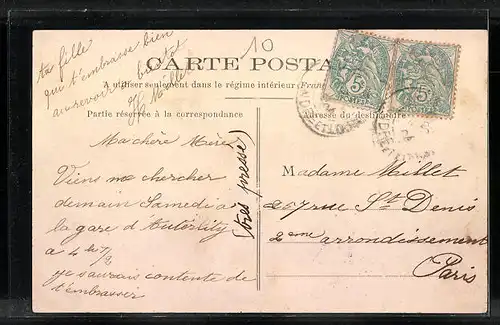 ta fille
qui t'embrasse bien
au revoir bientot
Millet
10
CARTE POSTA
A utiliser seulement dans le régime intérieur (Fran
Partie réservée à la correspondance
Adresse du destinataire
Ma chère Mère
Viens me chercher
demain Samedi a
la gare d'Auterlity
a 4 hes 1/2
je saurais contente de
t'embrasser
(très pressé)
Madame Millet
207 rue St Denis
2eme arrondissement
Paris
5c
5c
INDRE ET LOIRE